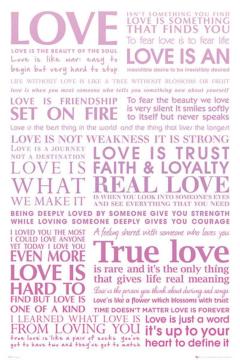 LOVE
ISN'T SOMETHING YOU FIND
LOVE IS SOMETHING
THAT FINDS YOU
To fear love is to fear life
LOVE IS THE BEAUTY OF THE SOUL
Love is like war: easy to
begin but very hard to stop
LOVE IS AN
irresistible desire to be irresistibly desired
LIFE WITHOUT LOVE IS LIKE A TREE WITHOUT BLOSSOMS OR FRUIT
love is when you meet someone who tells you something new about yourself
LOVE IS FRIENDSHIP
SET ON FIRE
To fear the beauty we love
is very silent It smiles softly
to itself but never speaks
Love is the best thing in the world and the thing that lives the longest
LOVE IS NOT WEAKNESS IT IS STRONG
LOVE IS A JOURNEY
NOT A DESTINATION
LOVE IS
WHAT
WE MAKE IT
LOVE IS TRUST
FAITH & LOYALTY
REAL LOVE
IS WHEN YOU LOOK INTO SOMEONES EYES
AND SEE EVERYTHING THAT YOU NEED
BEING DEEPLY LOVED BY SOMEONE GIVES YOU STRENGTH
WHILE LOVING SOMEONE DEEPLY GIVES YOU COURAGE
I LOVED YOU THE MOST
I COULD LOVE ANYONE
YET TODAY I LOVE YOU
EVEN MORE
LOVE IS
HARD TO
FIND BUT LOVE IS
ONE OF A KIND
I LEARNED WHAT LOVE IS
FROM LOVING YOU
True love is like a pair of socks you've
got to have two and they've got to match
A feeling shared with someone who loves you
True love
is rare and it's the only thing
that gives life real meaning
Love is the person you think about during sad songs
Love's like a flower which blossoms with trust
TIME DOESN'T MATTER LOVE IS FOREVER
Love is just a word
it's up to your
heart to define it